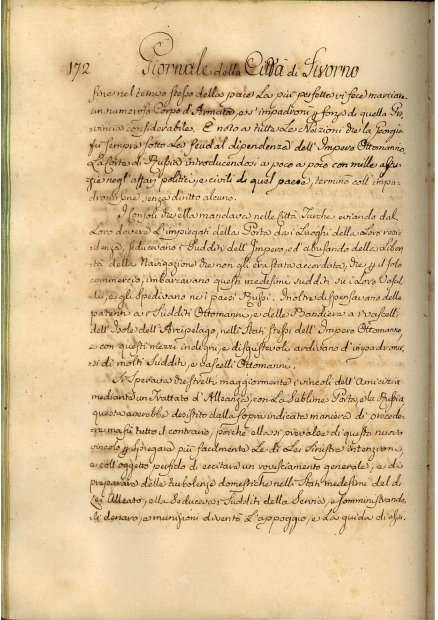 172 Giornale della Città di Livorno
fine nel tempo stesso della pace la più perfetta vi fece marciare
un numeroso Corpo d'Armata, e s'impadronì p. forza di quella Pro-
vincia considerabile. È noto a tutte le Nazioni che la Georgia
fu sempre sotto la feudal dipendenza dell'Impero Ottomanno,
La Corte di Russia introducendosi a poco a poco con mille astu-
zie negl'affari politici, e civili di quel paese, terminò coll'impa-
dronirsene senza diritto alcuno.
I Consoli che ella mandava nelle Città Turche, eviando dal
Loro dovere l'Impiegati della Porta da i Luoghi della Loro resi-
denza, seducevano i sudditi dell'Impero, ed abusando della Liber-
tà della Navigazione che non gli era stata accordata, che p. il solo
commercio, imbarcavano questi medesimi sudditi su i Loro Vascel-
li, e gli spedivano ne i paesi Russi. Inoltre dispensavano delle
patenti a i Sudditi Ottomanni, e delle Bandiere a i vascelli
dell'Isole dell'Arcipelago, nelli Stati stessi dell'Impero Ottomanno,
e con questi mezzi indegni, e disgustevoli ardivano d'impadronir-
si di molti Sudditi, e vascelli Ottomanni.
Si sperava che stretti maggiormente i vincoli dell'Amicizia
mediante un Trattato d'Alleanza, con la Sublime Porta, e la Russia
questa averebbe desistito dalla sopra indicata maniera di procede-
re ma fù tutto il contrario, perchè ella si prevalse di questo nuovo
vincolo p. spiegare più facilmente le di Lei sinistre intenzioni,
e coll'oggetto perfido di eccitare un rovesciamento generale, e di
preparare delle turbolenze domestiche nelli Stati medesimi del di
Lei Alleato, ella seduceva i sudditi della Servia, e somministrando
li denaro, e munizioni diventò l'appoggio, e la guida di essi.